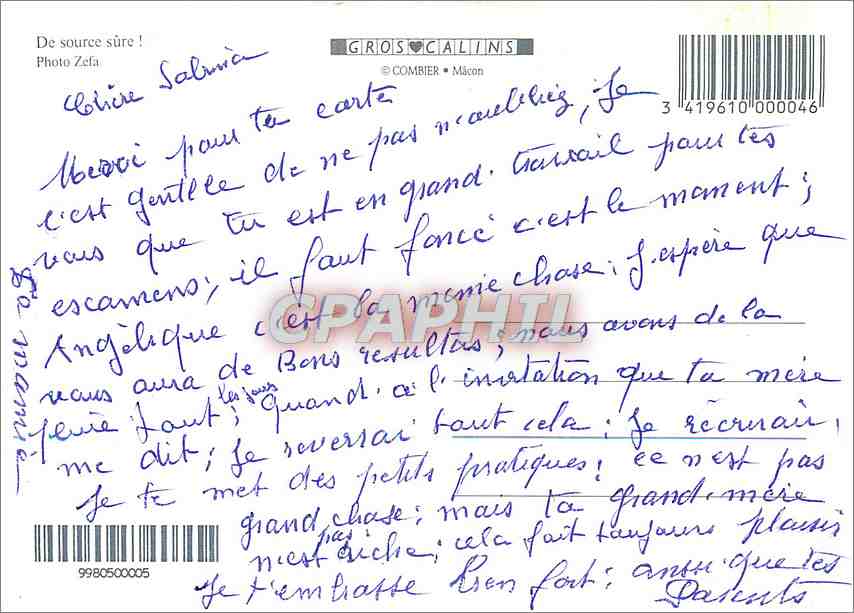 De source sûre !
Photo Zefa
GROS CALINS
© COMBIER • Mâcon
3 419610 000046
Chère Sabrina
Merci pour ta carte
c'est gentille de ne pas m'oubliez, Je
vous que tu est en grand. travail pour tes
escamens; il faut forcé c'est le moment;
Angèlique c'est la meme chose; J'espère que
vous aura de Bons resultas; nous avons de la
pluie tout les jours; Quand. a l'invitation que ta mère
me dit; Je reverrai tout cela; Je récrirai,
Je te met des petits pratiques; ce n'est pas
grand chose; mais ta grand-mère
n'est pas riche; cela fait toujours plaisir
Je t'embrasse bien fort; aussi que tes
Parents
La mamie
CPAPHIL
9980500005